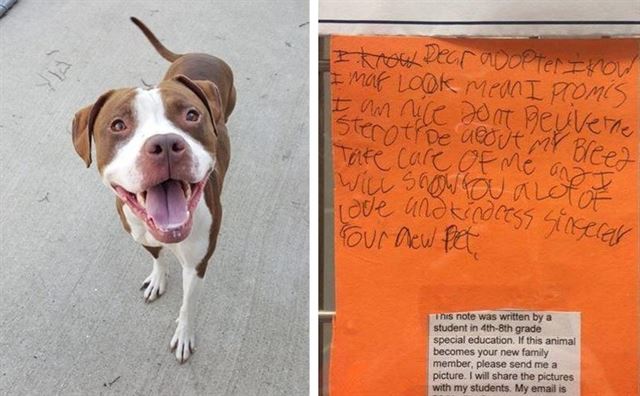 I know Dear adopter I know
I maf Look mean I promis
I am nice dont Beliverne
Sterotipe about my Breed
Tate care of me and I
will show you a lot of
Love and kindness sincerely
Your new Pet,
This note was written by a
student in 4th-8th grade
special education. If this animal
becomes your new family
member, please send me a
picture. I will share the pictures
with my students. My email is